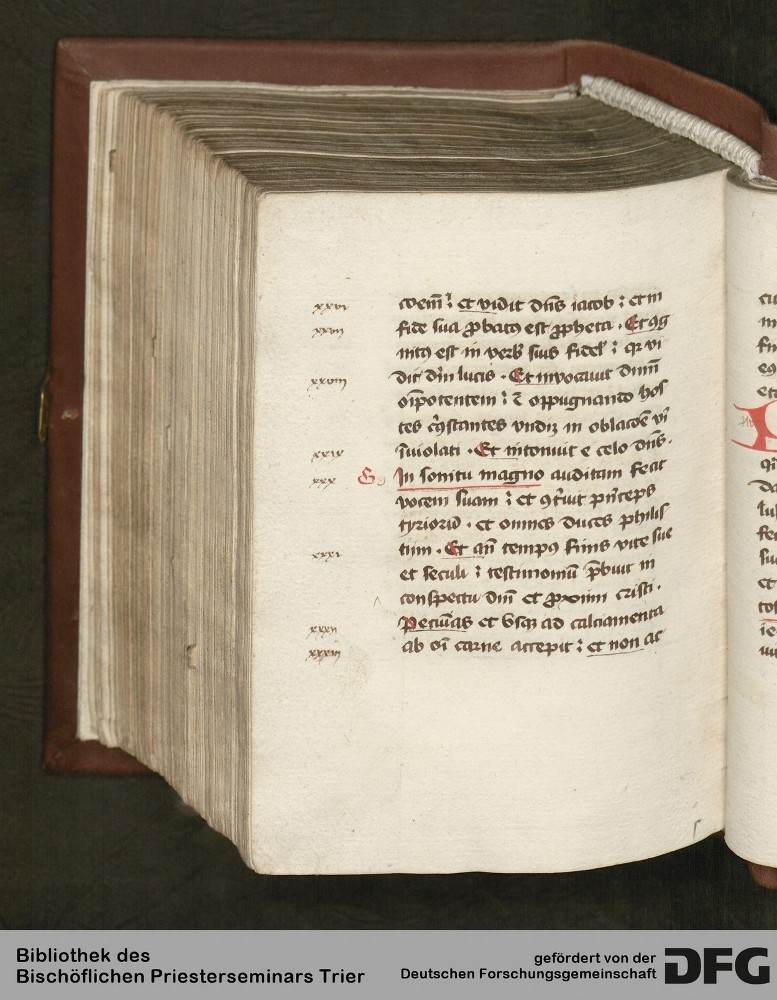 xxvi coem̄ : et vidit dn̄s iacob : et in
xxvii fide sua ꝓbatꝰ est ꝓpheta . Et cͦg
nitꝰ est in verb̄ suis fidel̄ : qꝛ vi
xxviii dit dm̄ lucis . Et invocavit dnm̄
oīpotentem : ⁊ oppugnando hos
tes cͦstantes vndiqꝫ in oblacōe vi
xxix īuiolati . Et intonuit e celo dn̄s .
xxx G In sonitu magno auditam fecit
vocem suam : et ꝯtͥuit pͥnceps
tyrioꝝ . et omnes duces philis
xxxi tiim . Et an̄ tempꝰ finis vite sue
et seculi : testimoniū p̄buit in
conspectu dnī et ꝓximi cristi .
xxxii Pecunias et vsqꝫ ad calciamenta
xxxiii ab oī carne accepit : et non ac
Bibliothek des
Bischöflichen Priesterseminars Trier
gefördert von der
Deutschen Forschungsgemeinschaft
DFG